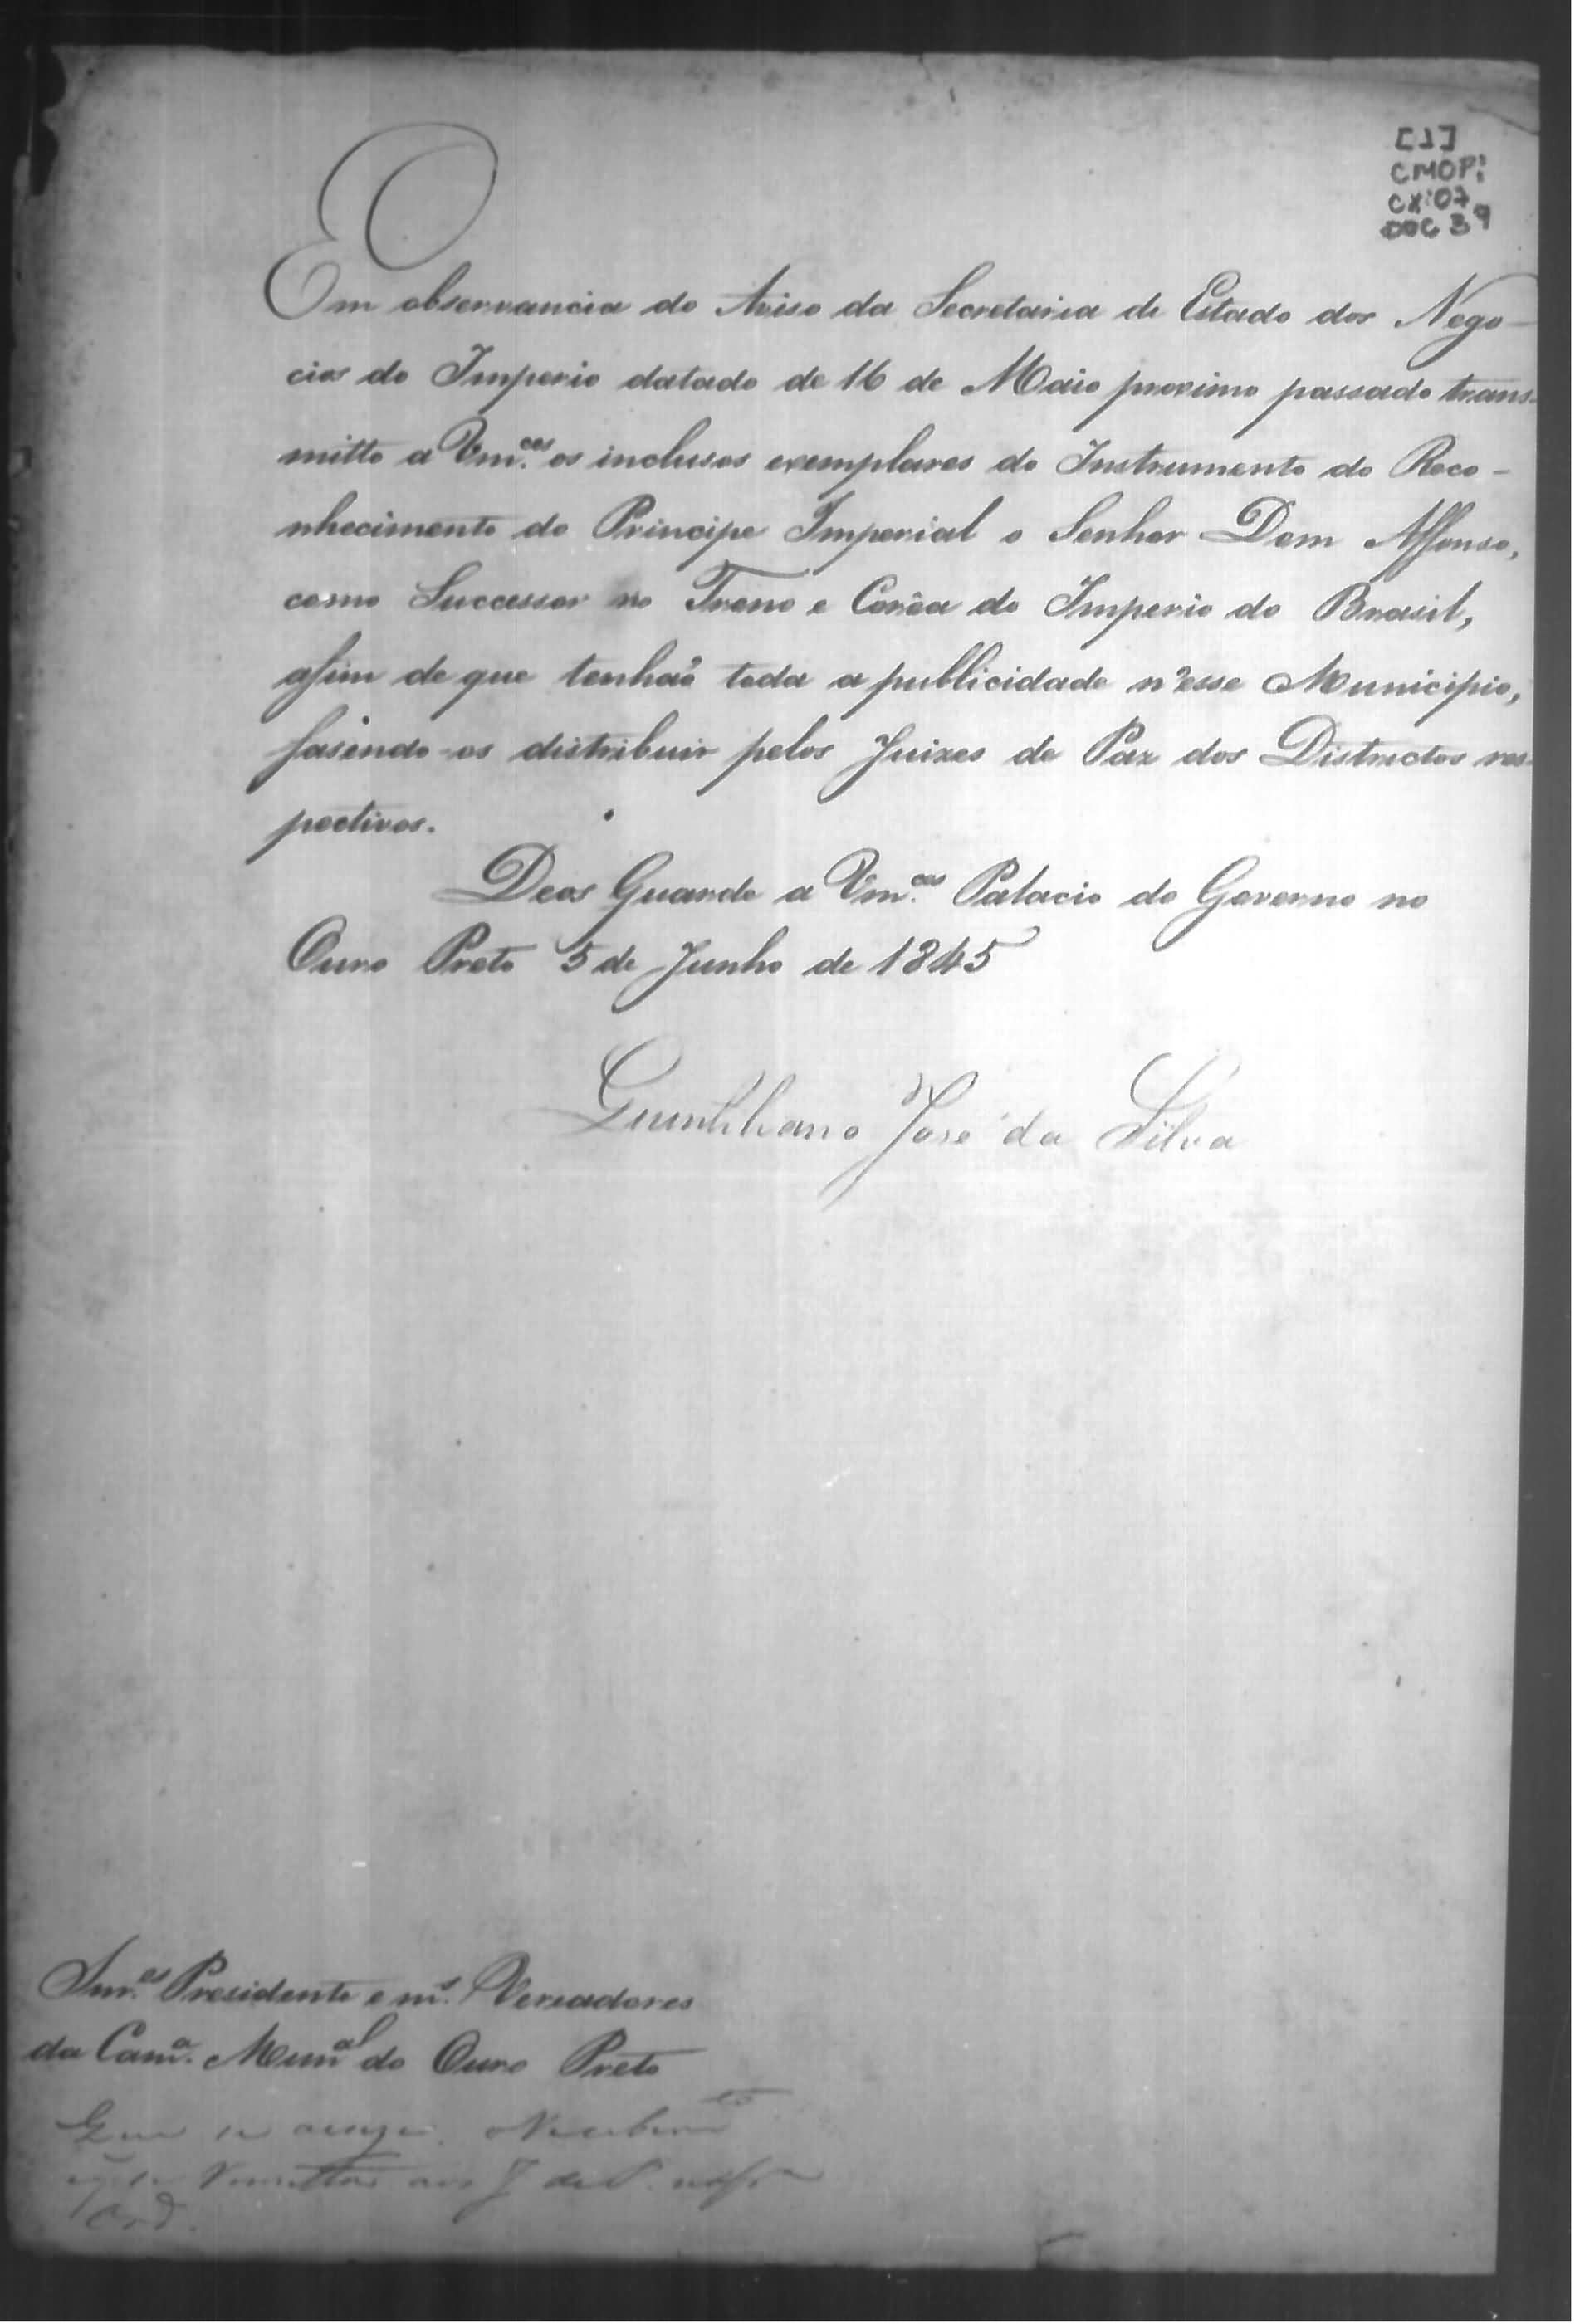 [1]
CMOP:
CX:07
DOC 39
Em observancia do Aviso da Secretaria de Estado dos Nego-
cios do Imperio datado de 16 de Maio proximo passado trans-
mitto a Vm.ces os inclusos exemplares do Instrumento do Reco-
nhecimento do Principe Imperial o Senhor Dom Affonso,
como Successor no Trono e Corôa do Imperio do Brasil,
afim de que tenhão toda a publicidade n'esse Municipio,
fasendo-os distribuir pelos Juizes de Paz dos Districtos res-
pectivos.
Deos Guarde a Vm.ces Palacio do Governo no
Ouro Preto 5 de Junho de 1845
Quintiliano José da Silva
Snr.es Presidente e m.s Vereadores
da Cam.a Mun.al do Ouro Preto
Que se
aos J. de P.